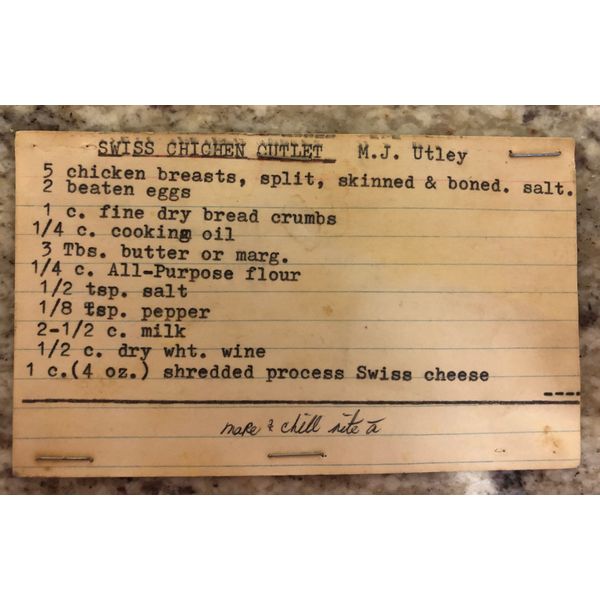 SWISS CHICHEN CUTLET M.J. Utley
5 chicken breasts, split, skinned & boned. salt.
2 beaten eggs
1 c. fine dry bread crumbs
1/4 c. cooking oil
3 Tbs. butter or marg.
1/4 c. All-Purpose flour
1/2 tsp. salt
1/8 tsp. pepper
2-1/2 c. milk
1/2 c. dry wht. wine
1 c.(4 oz.) shredded process Swiss cheese
----
make & chill nite a